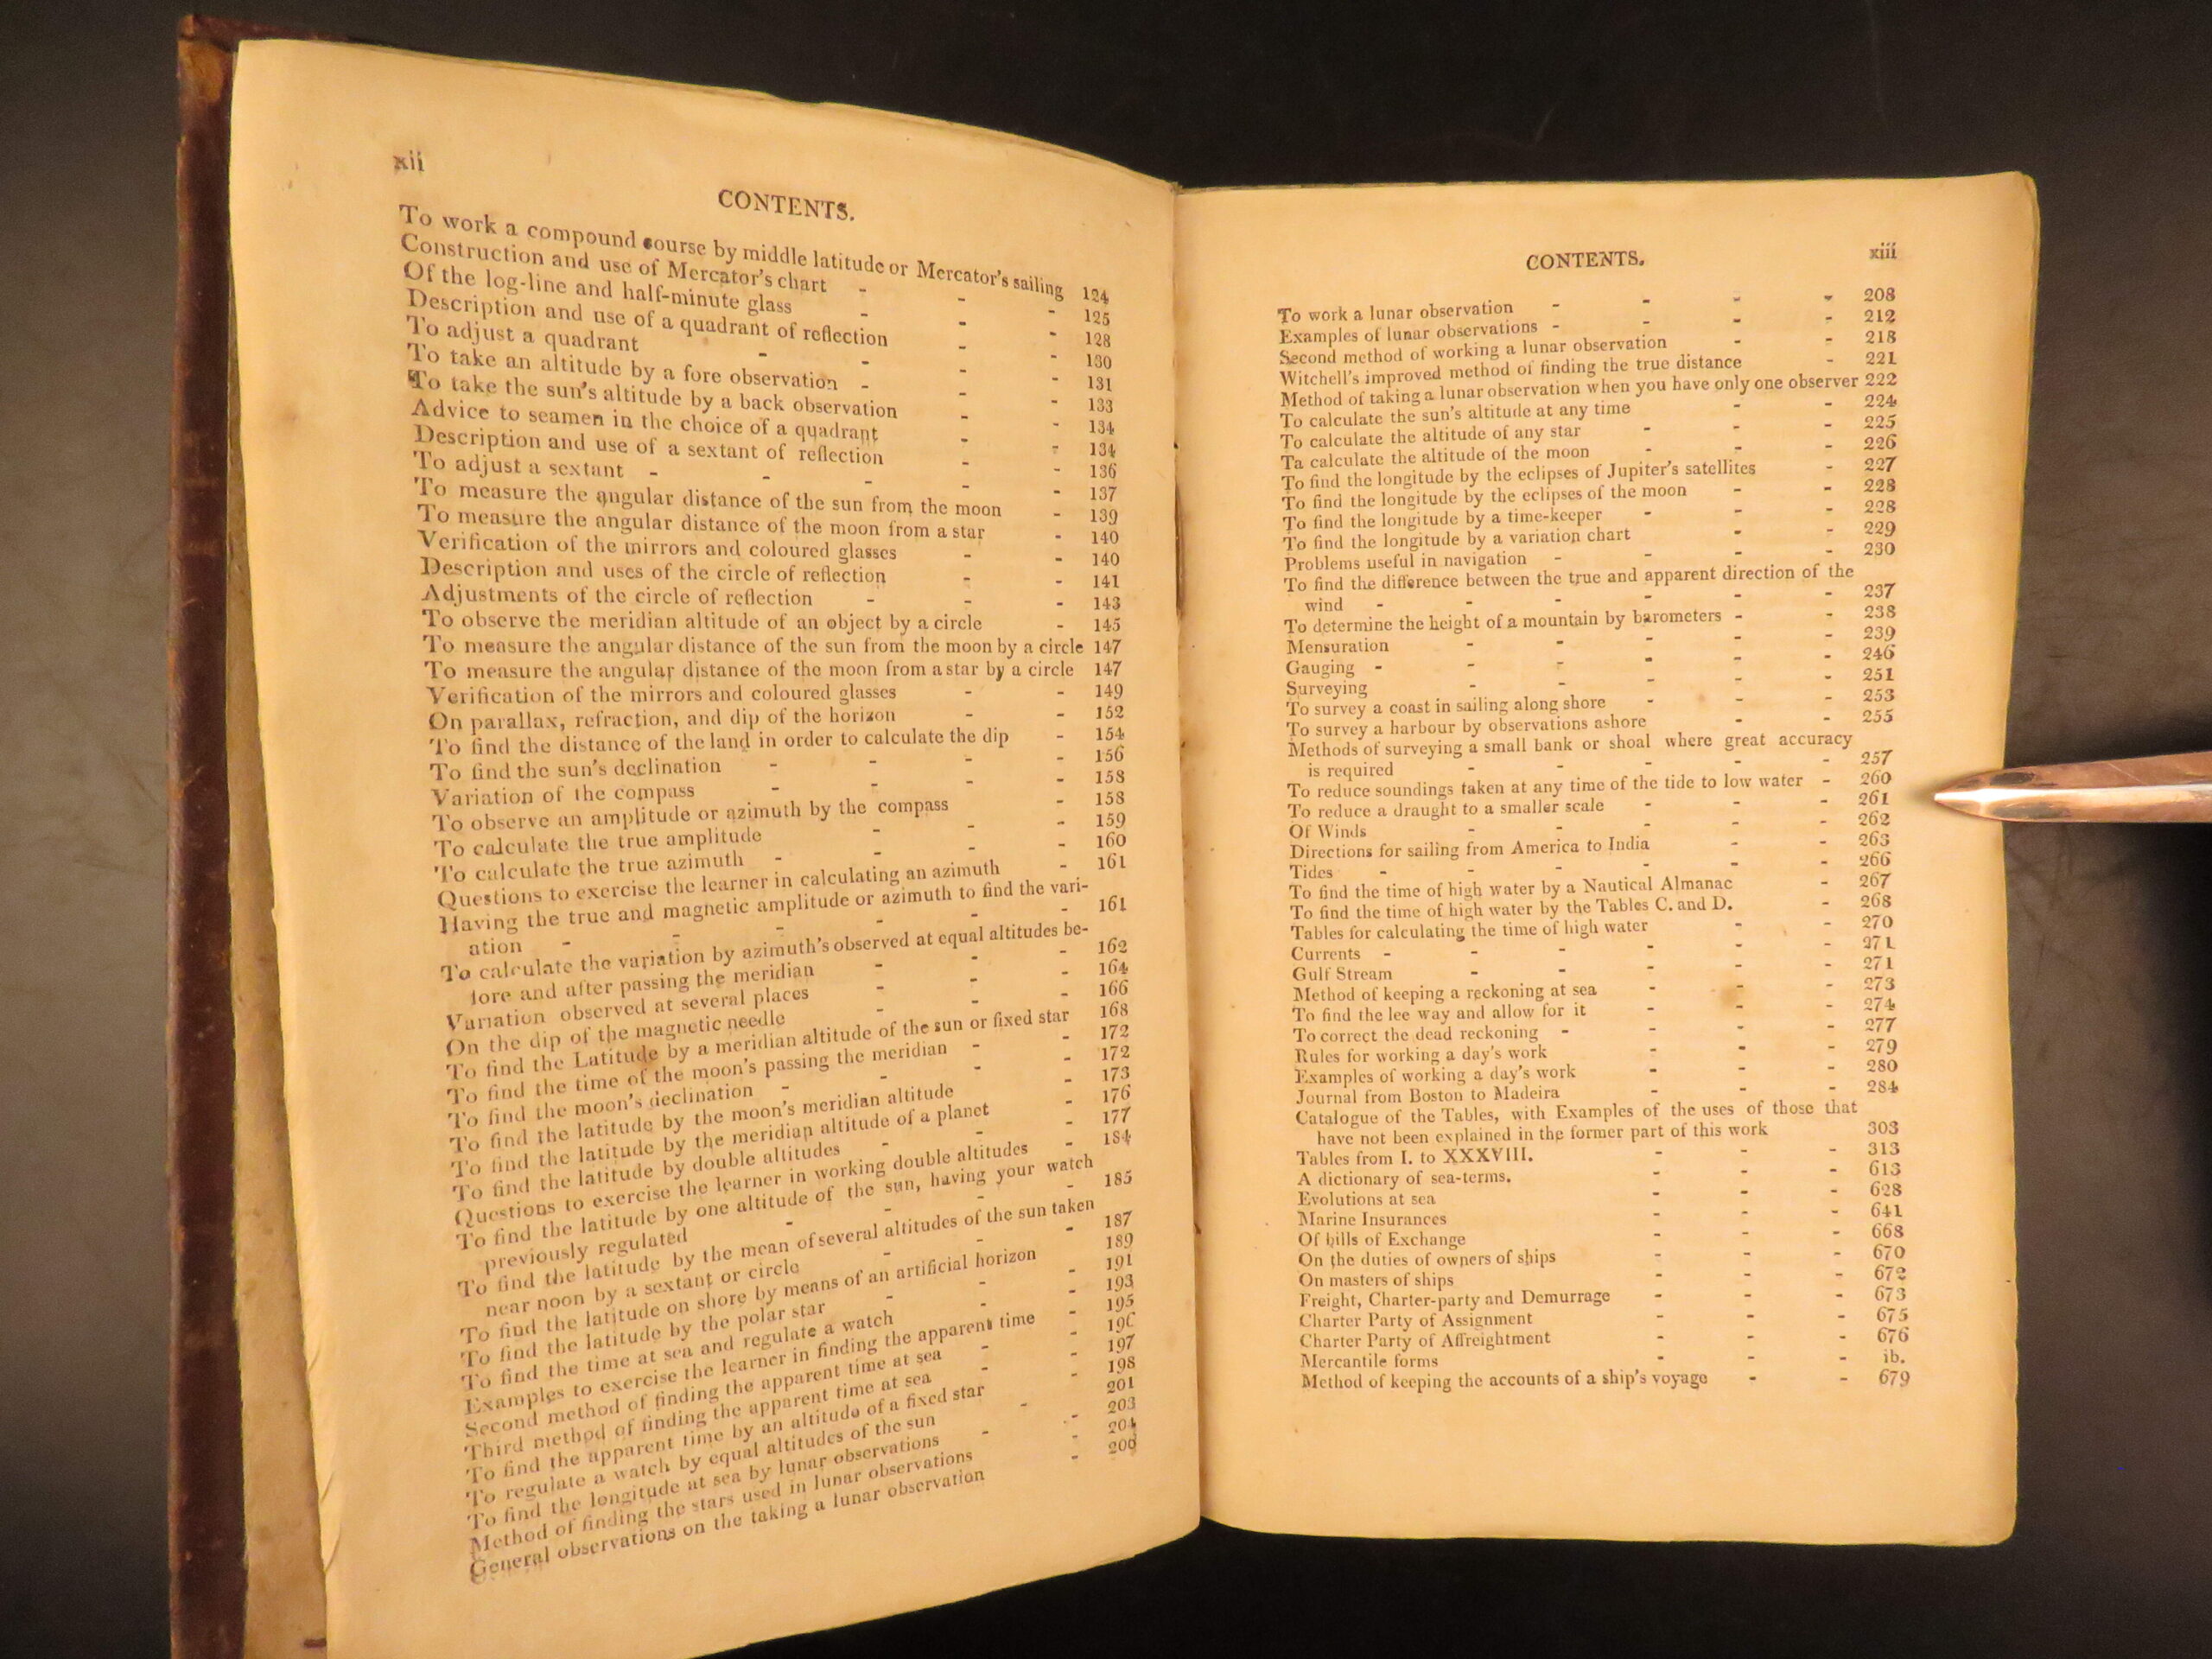 xii
CONTENTS.
To work a compound course by middle latitude or Mercator's sailing 124
Construction and use of Mercator's chart - - - 125
Of the log-line and half-minute glass - - - 128
Description and use of a quadrant of reflection - - 130
To adjust a quadrant - - - - 131
To take an altitude by a fore observation - - - 133
To take the sun's altitude by a back observation - - 134
Advice to seamen in the choice of a quadrant - - 134
Description and use of a sextant of reflection - - 136
To adjust a sextant - - - - - 137
To measure the angular distance of the sun from the moon - 139
To measure the angular distance of the moon from a star - 140
Verification of the mirrors and coloured glasses - - 140
Description and uses of the circle of reflection - - 141
Adjustments of the circle of reflection - - - 143
To observe the meridian altitude of an object by a circle - 145
To measure the angular distance of the sun from the moon by a circle 147
To measure the angular distance of the moon from a star by a circle 147
Verification of the mirrors and coloured glasses - - 149
On parallax, refraction, and dip of the horizon - - 152
To find the distance of the land in order to calculate the dip - 154
To find the sun's declination - - - - 156
Variation of the compass - - - - 158
To observe an amplitude or azimuth by the compass - 158
To calculate the true amplitude - - - 159
To calculate the true azimuth - - - - 160
Questions to exercise the learner in calculating an azimuth - 161
Having the true and magnetic amplitude or azimuth to find the vari-
ation - - - - - - 161
To calculate the variation by azimuth's observed at equal altitudes be-
fore and after passing the meridian - - - 162
Variation observed at several places - - - 164
On the dip of the magnetic needle - - - 166
To find the Latitude by a meridian altitude of the sun or fixed star 168
To find the time of the moon's passing the meridian - - 172
To find the moon's declination - - - - 172
To find the latitude by the moon's meridian altitude - 173
To find the latitude by the meridian altitude of a planet - 176
To find the latitude by double altitudes - - - 177
Questions to exercise the learner in working double altitudes - 184
To find the latitude by one altitude of the sun, having your watch
previously regulated - - - - 185
To find the latitude by the mean of several altitudes of the sun taken
near noon by a sextant or circle - - - 187
To find the latitude on shore by means of an artificial horizon 189
To find the latitude by the polar star - - - 191
To find the time at sea and regulate a watch - - 193
Examples to exercise the learner in finding the apparent time - 195
Second method of finding the apparent time at sea - - 196
Third method of finding the apparent time at sea - - 197
To find the apparent time by an altitude of a fixed star - 198
To regulate a watch by equal altitudes of the sun - 201
To find the longitude at sea by lunar observations - - 203
Method of finding the stars used in lunar observations - 204
General observations on the taking a lunar observation - 206
CONTENTS. xiii
To work a lunar observation - - - - 208
Examples of lunar observations - - - - 212
Second method of working a lunar observation - - 218
Witchell's improved method of finding the true distance - 221
Method of taking a lunar observation when you have only one observer 222
To calculate the sun's altitude at any time - - 224
To calculate the altitude of any star - - - 225
Ta calculate the altitude of the moon - - - 226
To find the longitude by the eclipses of Jupiter's satellites - 227
To find the longitude by the eclipses of the moon - - 228
To find the longitude by a time-keeper - - - 228
To find the longitude by a variation chart - - 229
Problems useful in navigation - - - - 230
To find the difference between the true and apparent direction of the
wind - - - - - - 237
To determine the height of a mountain by barometers - - 238
Mensuration - - - - - 239
Gauging - - - - - - 246
Surveying - - - - - 251
To survey a coast in sailing along shore - - - 253
To survey a harbour by observations ashore - - 255
Methods of surveying a small bank or shoal where great accuracy
is required - - - - - 257
To reduce soundings taken at any time of the tide to low water - 260
To reduce a draught to a smaller scale - - - 261
Of Winds - - - - - 262
Directions for sailing from America to India - - 263
Tides - - - - - - 266
To find the time of high water by a Nautical Almanac - 267
To find the time of high water by the Tables C. and D. - 268
Tables for calculating the time of high water - - 270
Currents - - - - - - 271
Gulf Stream - - - - - 271
Method of keeping a reckoning at sea - - - 273
To find the lee way and allow for it - - - 274
To correct the dead reckoning - - - - 277
Rules for working a day's work - - - 279
Examples of working a day's work - - - 280
Journal from Boston to Madeira - - - 284
Catalogue of the Tables, with Examples of the uses of those that
have not been explained in the former part of this work 303
Tables from I. to XXXVIII. - - - 313
A dictionary of sea-terms. - - - 613
Evolutions at sea - - - 628
Marine Insurances - - - 641
Of bills of Exchange - - - 668
On the duties of owners of ships - - - 670
On masters of ships - - - 672
Freight, Charter-party and Demurrage - - - 673
Charter Party of Assignment - - - 675
Charter Party of Affreightment - - - 676
Mercantile forms - - - ib.
Method of keeping the accounts of a ship's voyage - - 679